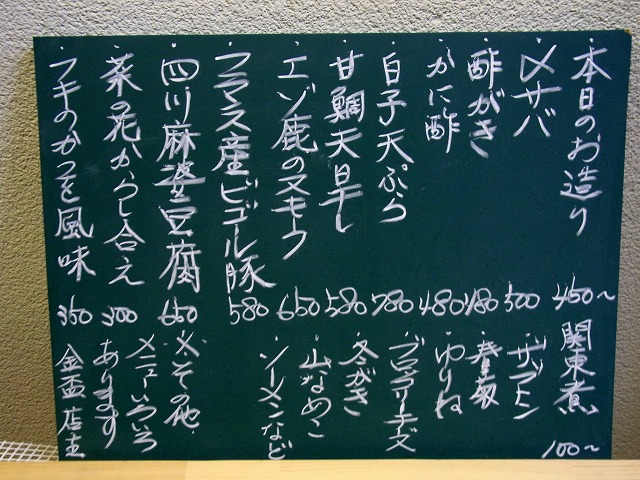 ・本日のお造り 450〜
・〆サバ 500
・酢がき 480
・かに酢 480
・白子天ぷら 780
・甘鯛天日干し 580
・エゾ鹿のスモーク 650
・フランス産ビゴール豚 580
・四川麻婆豆腐 650
・菜の花からし合え 300
・フキのかつを風味 350
関東煮 100〜
・ザブトン
・春菊
・ゆりね
・ブロッコリーチーズ
・冬がき
・山なめこ
・ソーメンなど
※その他
メニューいろいろ
あります
金盃 店主